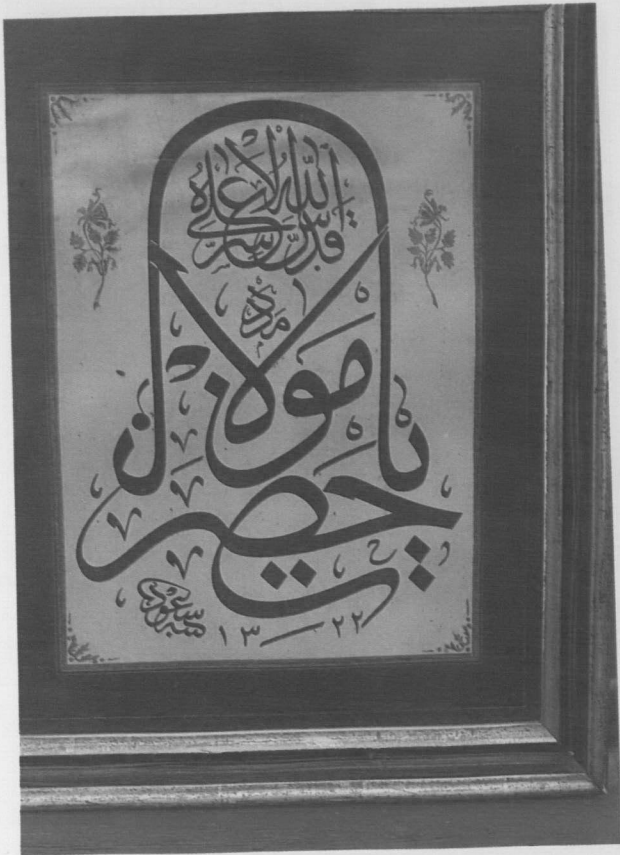 قدّس الله سرّه الاعلى
مدد
يا حضرت مولانا
١٣٢٢